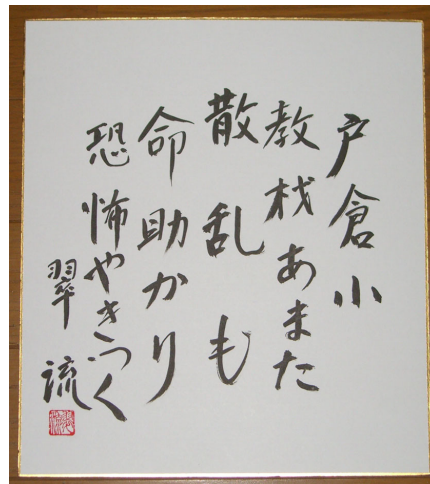 戸倉小
教材あまた
散乱も
命助かり
恐怖やきつく
翠流